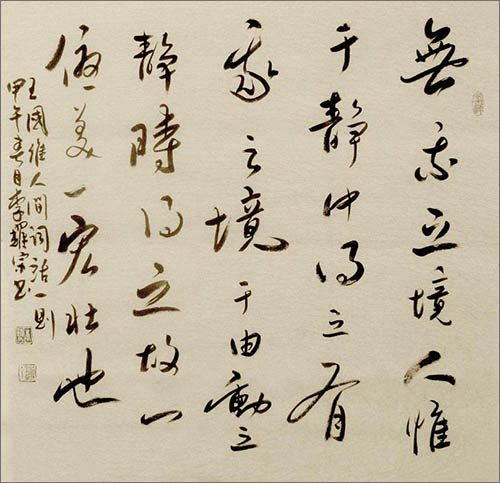 無我之境人惟
于静中得之有
我之境于由動之
静時得之故一
優美一宏壯也
王國維人間詞話一則
甲午春月李耀宗书